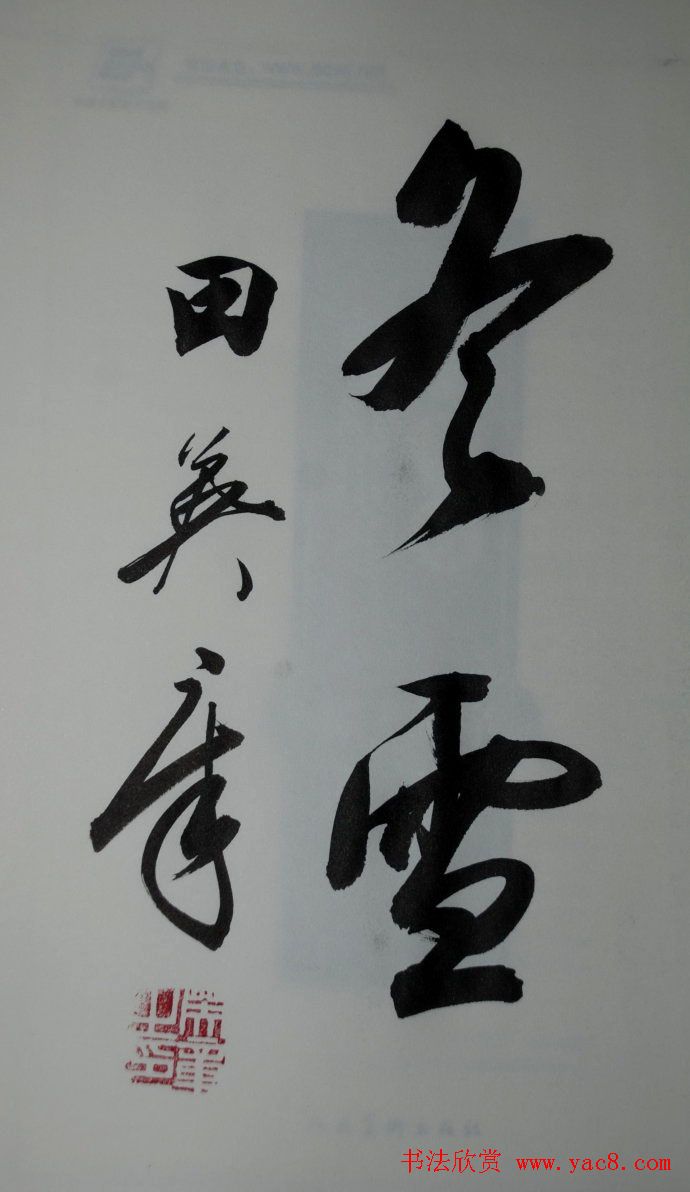 冬雪
田英章
书法欣赏 www.yac8.com